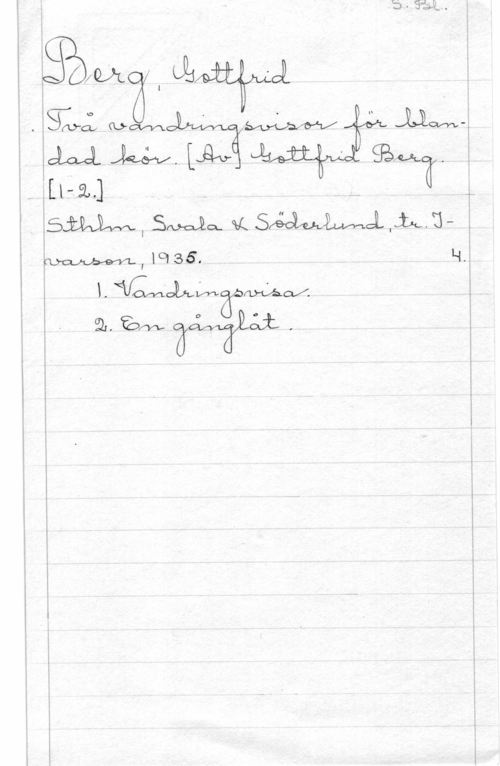 S. Bl.
Berg, Gottfrid
Två vandringsvisor för blan-
dad kör. [Av] Gottfrid Berg.
[1-2.]
Sthlm, Svala & Söderlund, tr. I-
varson, 1935. 4.
1. Vandringsvisa.
2. En gånglåt.